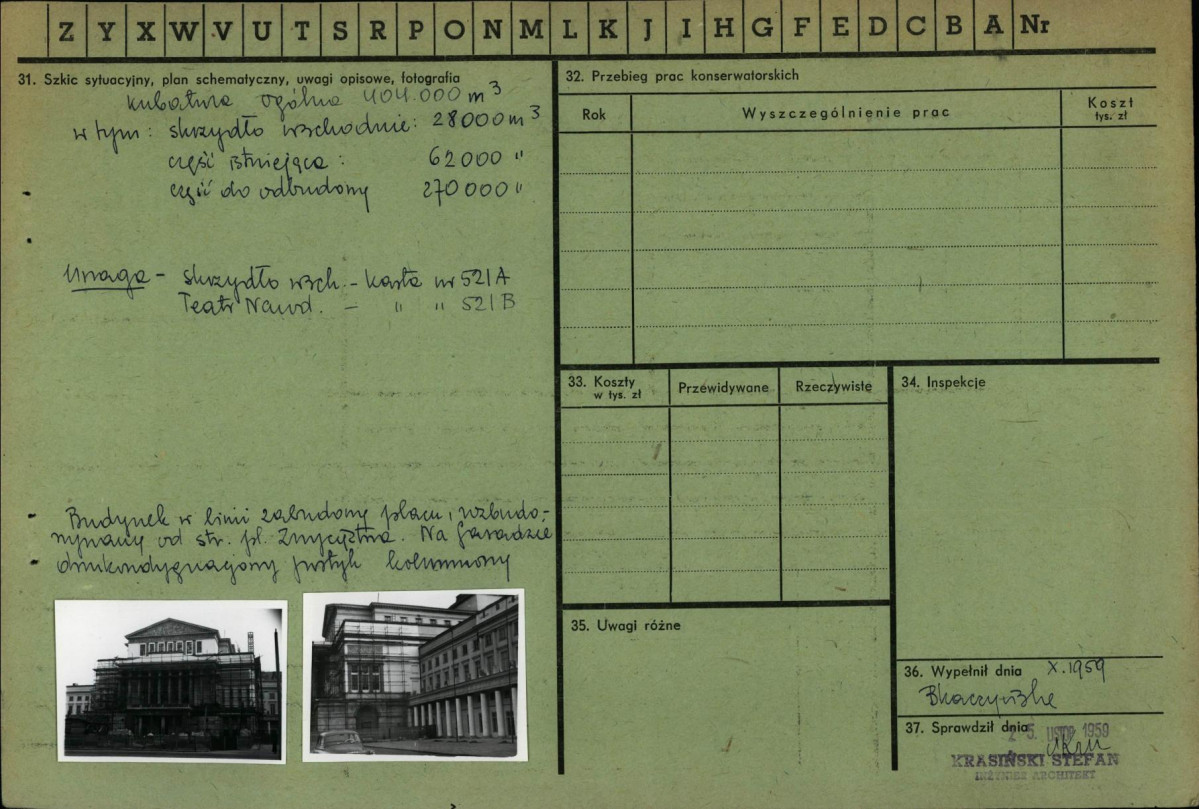 Z Y X W V U T S R P O N M L K J I H G F E D C B A Nr
31. Szkic sytuacyjny, plan schematyczny, uwagi opisowe, fotografia
kubatura ogólna 404.000 m³
w tym: skrzydło wschodnie: 28000 m³
część istniejąca: 62000 "
część do odbudowy 270000 "
Uwaga - skrzydło wsch. - karta nr 521A
Teatr Narod. - " " 521B
Budynek w linii zabudowy placu, rozbudo-
wywany od str. pl. Zwycięstwa. Na fasadzie
dwukondygnacjowy portyk kolumnowy
32. Przebieg prac konserwatorskich
Rok
Wyszczególnienie prac
Koszt
tys. zł
33. Koszty
w tys. zł
Przewidywane
Rzeczywiste
34. Inspekcje
35. Uwagi różne
36. Wypełnił dnia X.1959
37. Sprawdził dnia 25. LISTOP 1959
KRASIŃSKI STEFAN
INŻYNIER ARCHITEKT